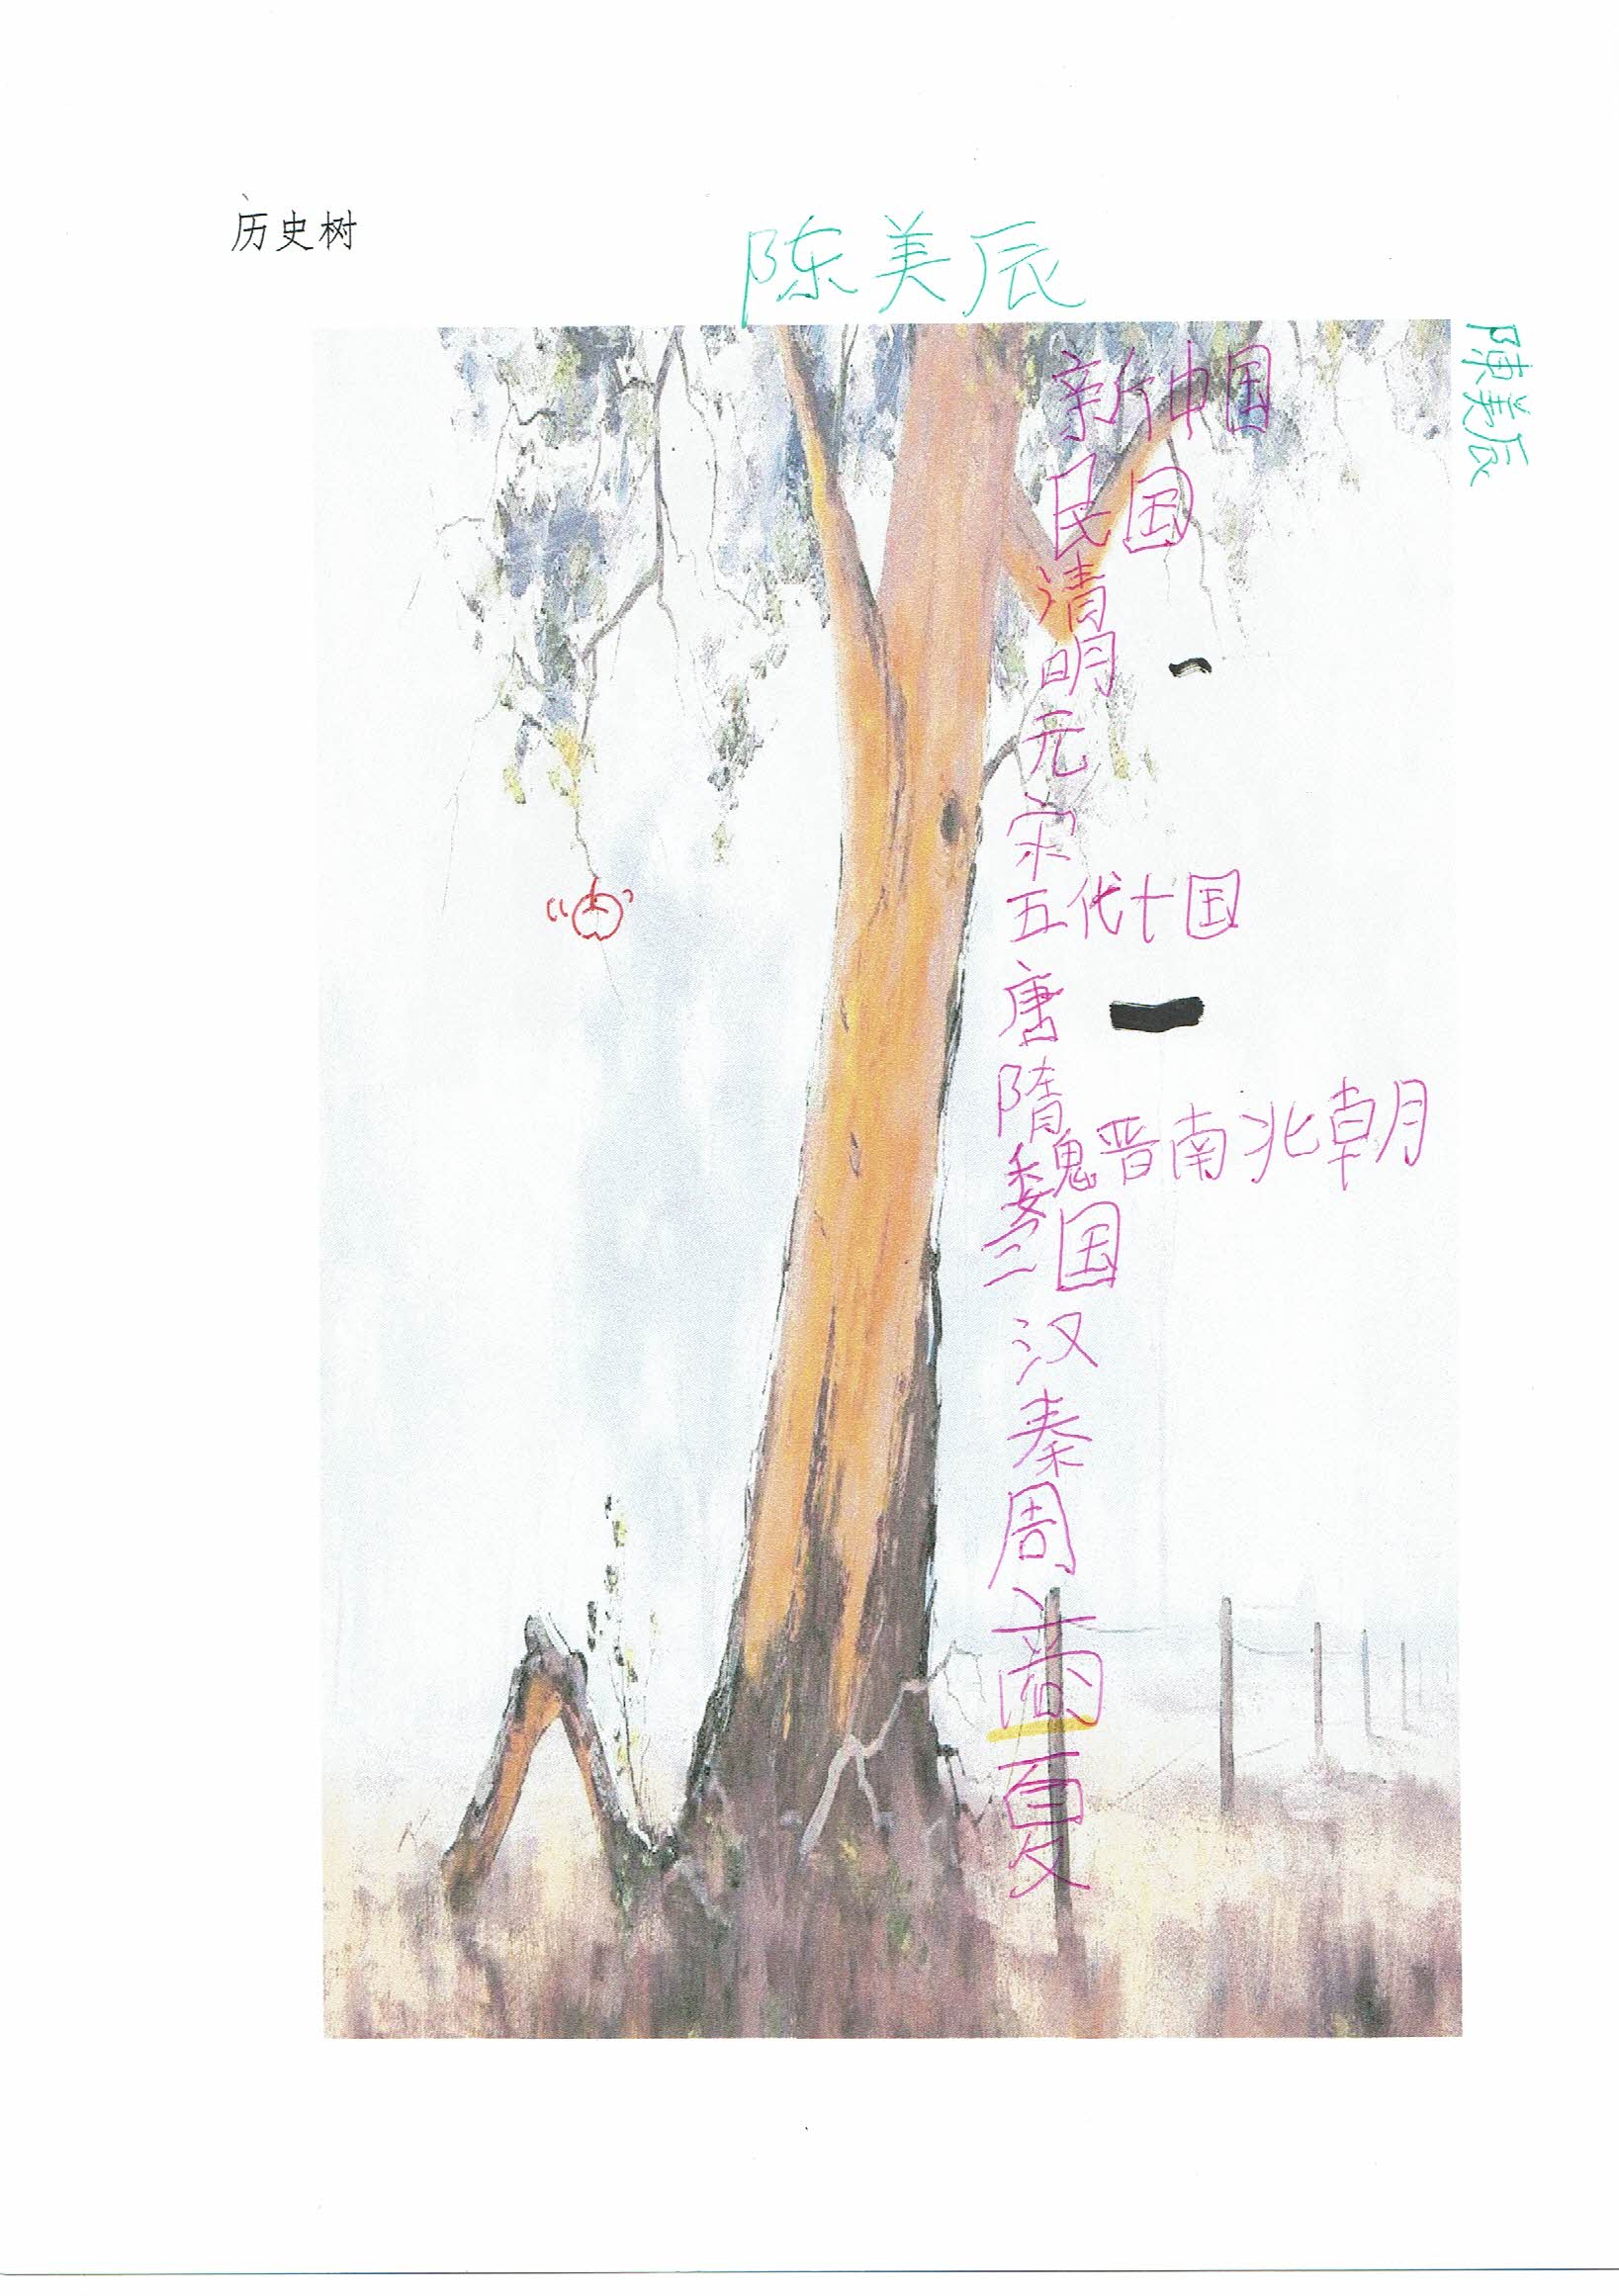 历史树
陈美辰
陳美辰
新中国
民国
清
明
元
宋
五代十国
唐
隋
魏晋南北朝
三国
汉
秦
周
商
夏